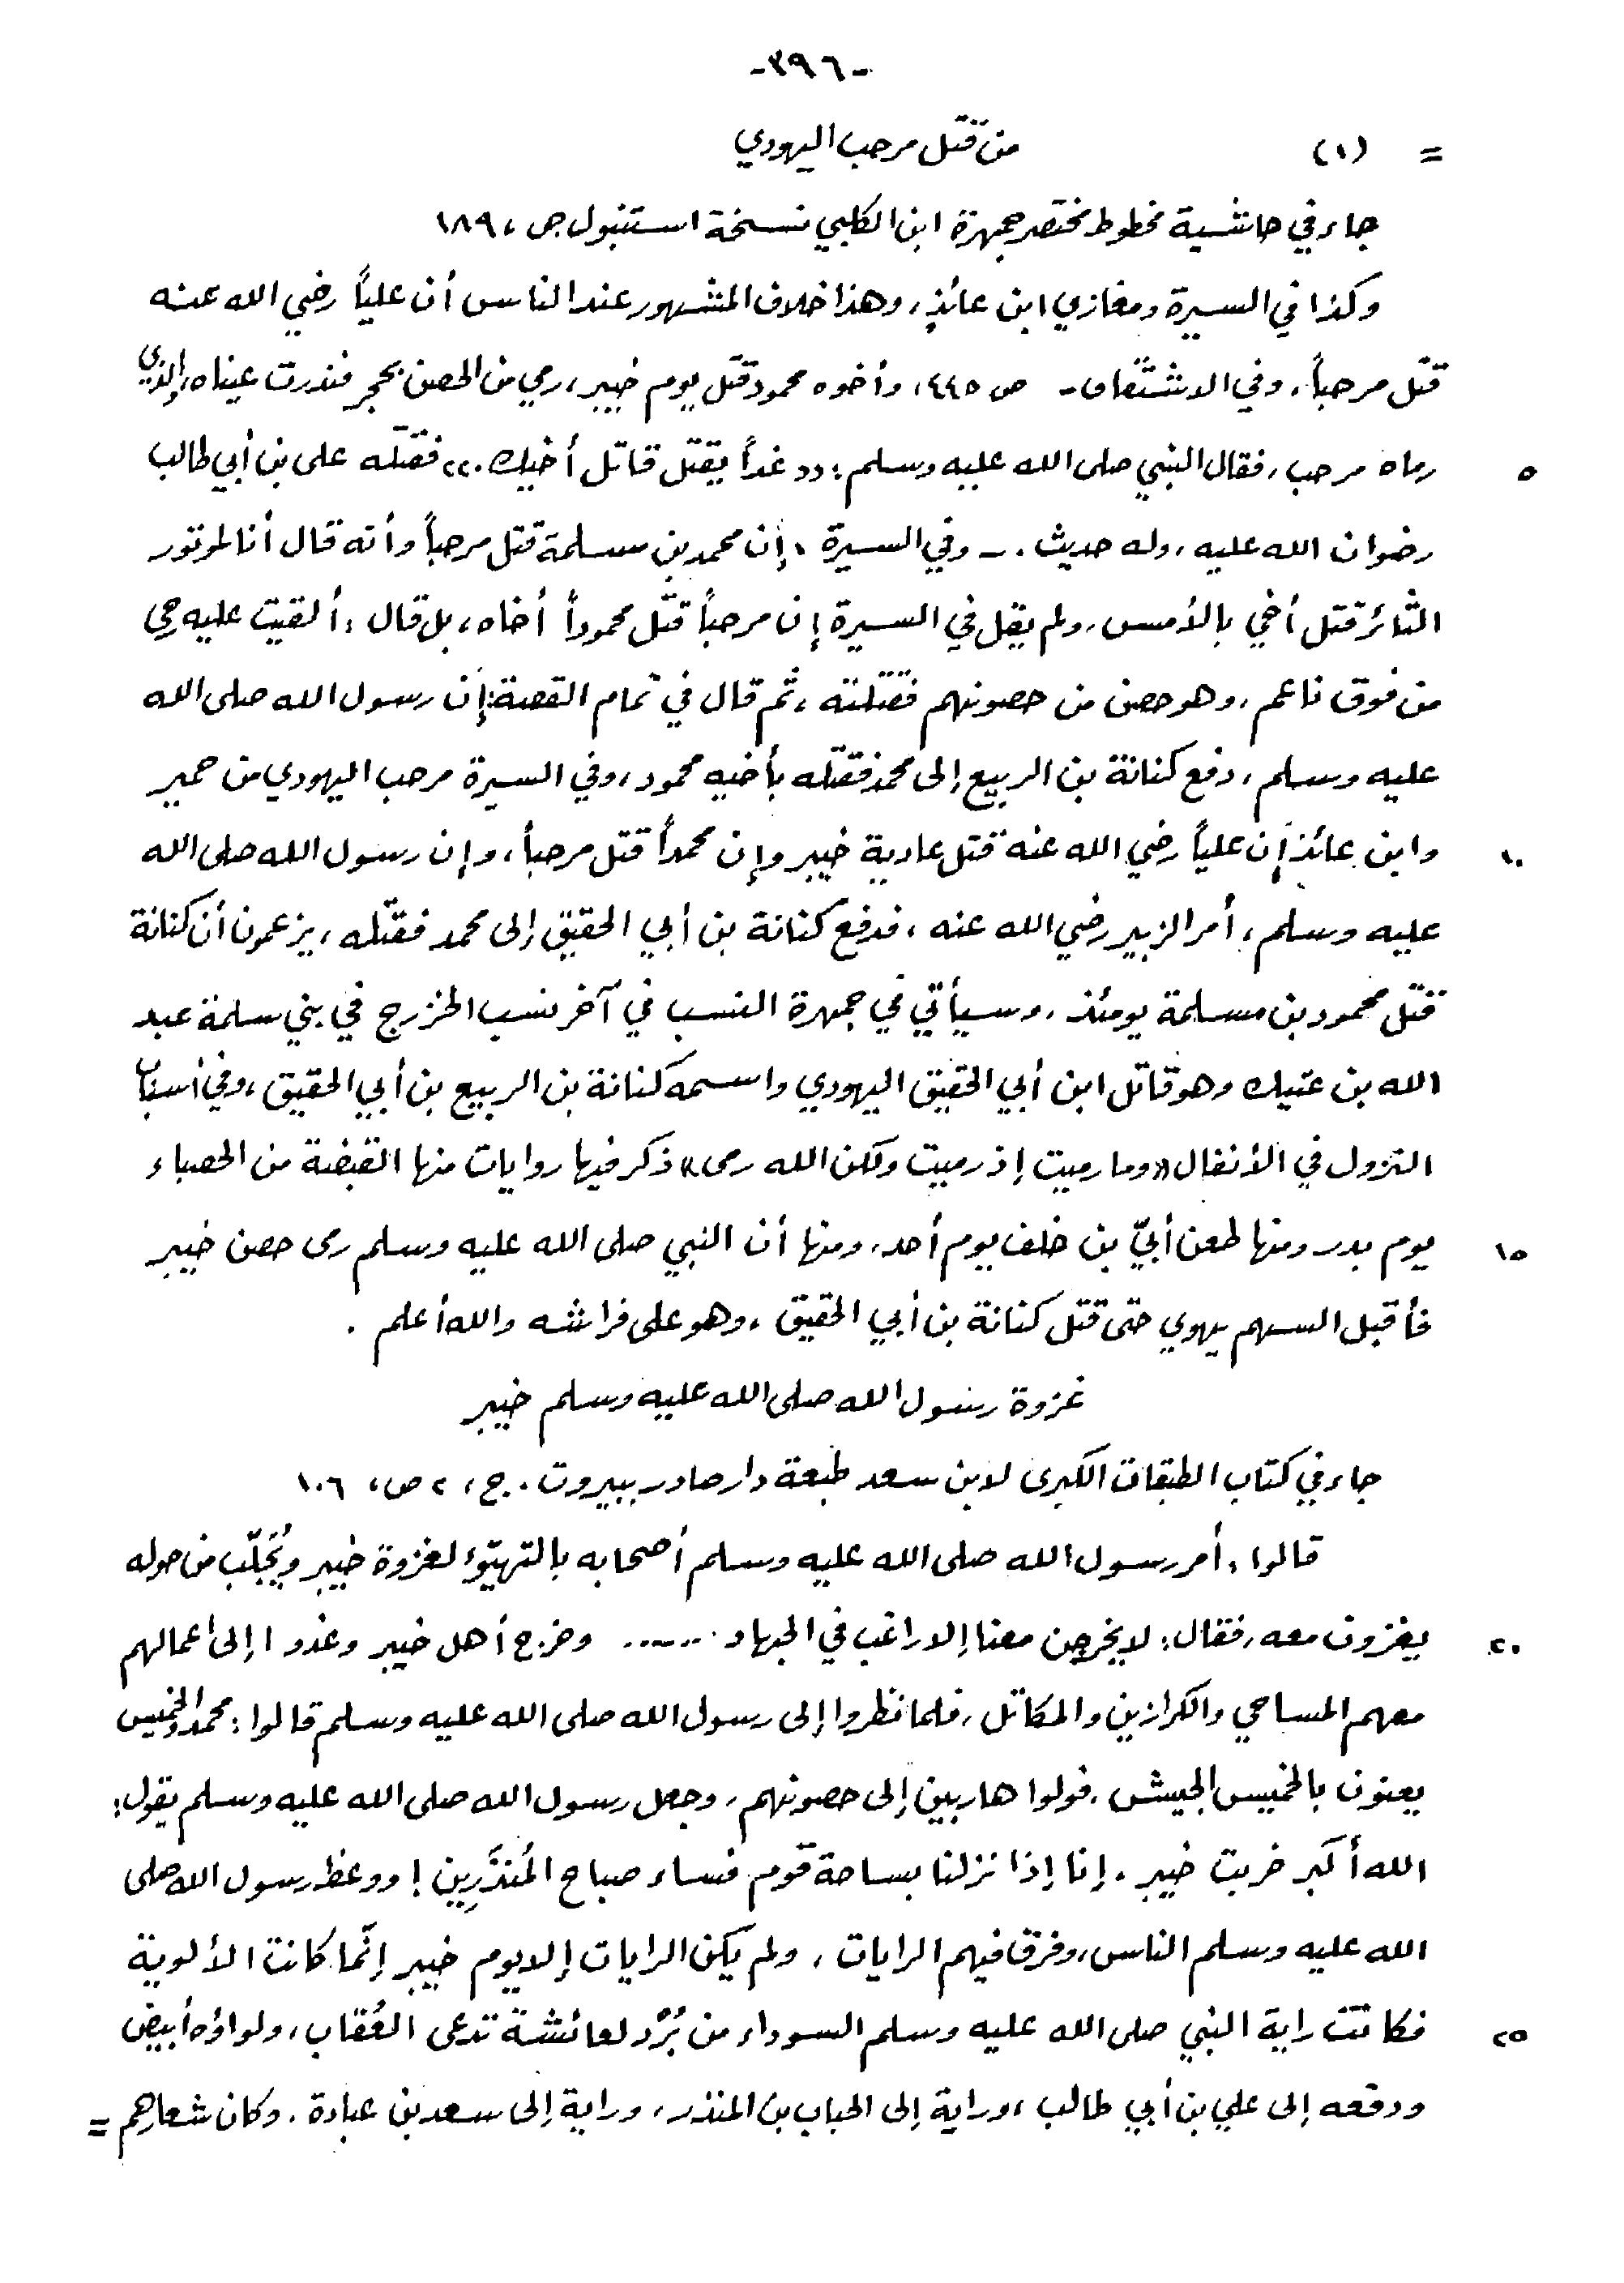 -٣٩٦-
= (١) من قتل مرحب اليهودي
جاء في حاشية مخطوط مختصر جمهرة ابن الكلبي نسخة استنبول ص، ١٨٩
وكذا في السيرة ومغازي ابن عائذٍ، وهذا خلاف المشهور عند الناس أن علياً رضي الله عنه
قتل مرحباً، وفي الاشتقاق - ص ٤٤٥، وأخوه محمود قتل يوم خيبر، رمي من الحصن بحجر فندرت عيناه، الذي
٥ رماه مرحب، فقال النبي صلى الله عليه وسلم: «غداً يقتل قاتل أخيك.» فقتله على بن أبي طالب
رضوان الله عليه، وله حديث. - وفي السيرة، إن محمد بن مسلمة قتل مرحباً وأنه قال أنا الموتور
الثائر قتل أخي بالأمس، ولم يقل في السيرة إن مرحباً قتل محموداً أخاه، بل قال: ألقيت عليه رحى
من فوق ناعم، وهو حصن من حصونهم فقتلته، ثم قال في تمام القصة: إن رسول الله صلى الله
عليه وسلم، دفع كنانة بن الربيع إلى محمد فقتله بأخيه محمود، وفي السيرة مرحب اليهودي من حمير
١٠ وابن عائذ إن علياً رضي الله عنه قتل عادية خيبر وإن محمداً قتل مرحباً، وإن رسول الله صلى الله
عليه وسلم، أمر الزبير رضي الله عنه، فدفع كنانة بن أبي الحقيق إلى محمد فقتله، يزعمون أن كنانة
قتل محمود بن مسلمة يومئذ، وسيأتي في جمهرة النسب في آخر نسب الخزرج في بني سلمة عبد
الله بن عتيك وهو قاتل ابن أبي الحقيق اليهودي واسمه كنانة بن الربيع بن أبي الحقيق، وفي أسباب
النزول في الأنفال «وما رميت إذ رميت ولكن الله رمى» ذكر فيها روايات منها القبضة من الحصباء
١٥ يوم بدر ومنها طعن أبيّ بن خلف يوم أحد، ومنها أن النبي صلى الله عليه وسلم رمى حصن خيبر
فأقبل السهم يهوي حتى قتل كنانة بن أبي الحقيق، وهو على فراشه والله أعلم.
غزوة رسول الله صلى الله عليه وسلم خيبر
جاء في كتاب الطبقات الكبرى لابن سعد طبعة دار صادر ببيروت. ج، ٢ ص، ١٠٦
قالوا: أمر رسول الله صلى الله عليه وسلم أصحابه بالتهيّؤ لغزوة خيبر ويُجَلّب من حوله
٢٠ يغزون معه، فقال: لا يخرجن معنا إلا راغب في الجهاد ...... وخرج أهل خيبر وغدوا إلى أعمالهم
معهم المساحي والكرازين والمكاتل، فلما نظروا إلى رسول الله صلى الله عليه وسلم قالوا: محمد والخميس
يعنون بالخميس الجيش، فولوا هاربين إلى حصونهم، وجعل رسول الله صلى الله عليه وسلم يقول:
الله أكبر خربت خيبر. إنا إذا نزلنا بساحة قوم فساء صباح المُنذَرِين! ووعظ رسول الله صلى
الله عليه وسلم الناس، وفرق فيهم الرايات، ولم يكن الرايات إلا يوم خيبر إنّما كانت الألوية
٢٥ فكانت راية النبي صلى الله عليه وسلم السوداء من بُرْد لعائشة تدعى العُقاب، ولواؤه أبيض
ودفعه إلى علي بن أبي طالب، وراية إلى الحباب بن المنذر، وراية إلى سعد بن عبادة. وكان شعارهم =